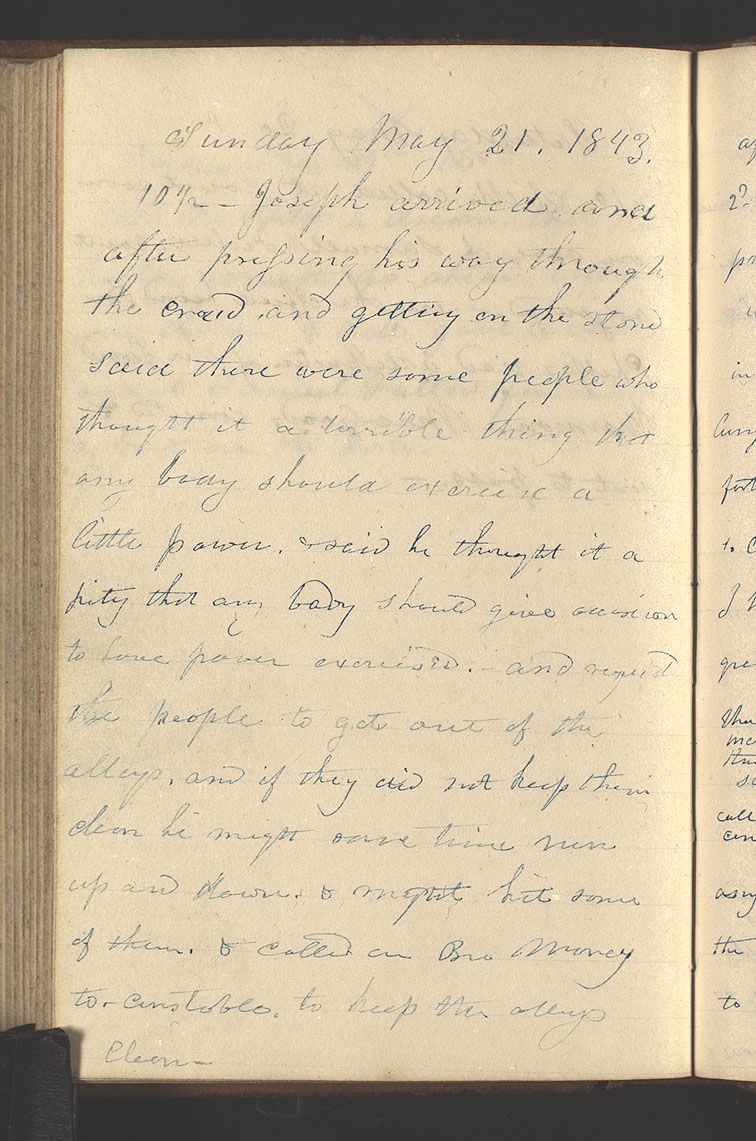 Sunday May 21. 1843.
10 1/2 - Joseph arrived. and
after pressing his way through
the crowd. and getting on the stand
said there were some people who
thought it a terrible thing that
any body should exercise a
little power. & said he thought it a
pity that any body should give occasion
to have power exercised. - and requestd
the people to get out of the
alleys. and if they did not keep them
clean he might some time run
up and down. & might hit some
of them. & called on Bro Morey
to constable. to keep the alleys
clean -
2?
in
fort
to
the
to